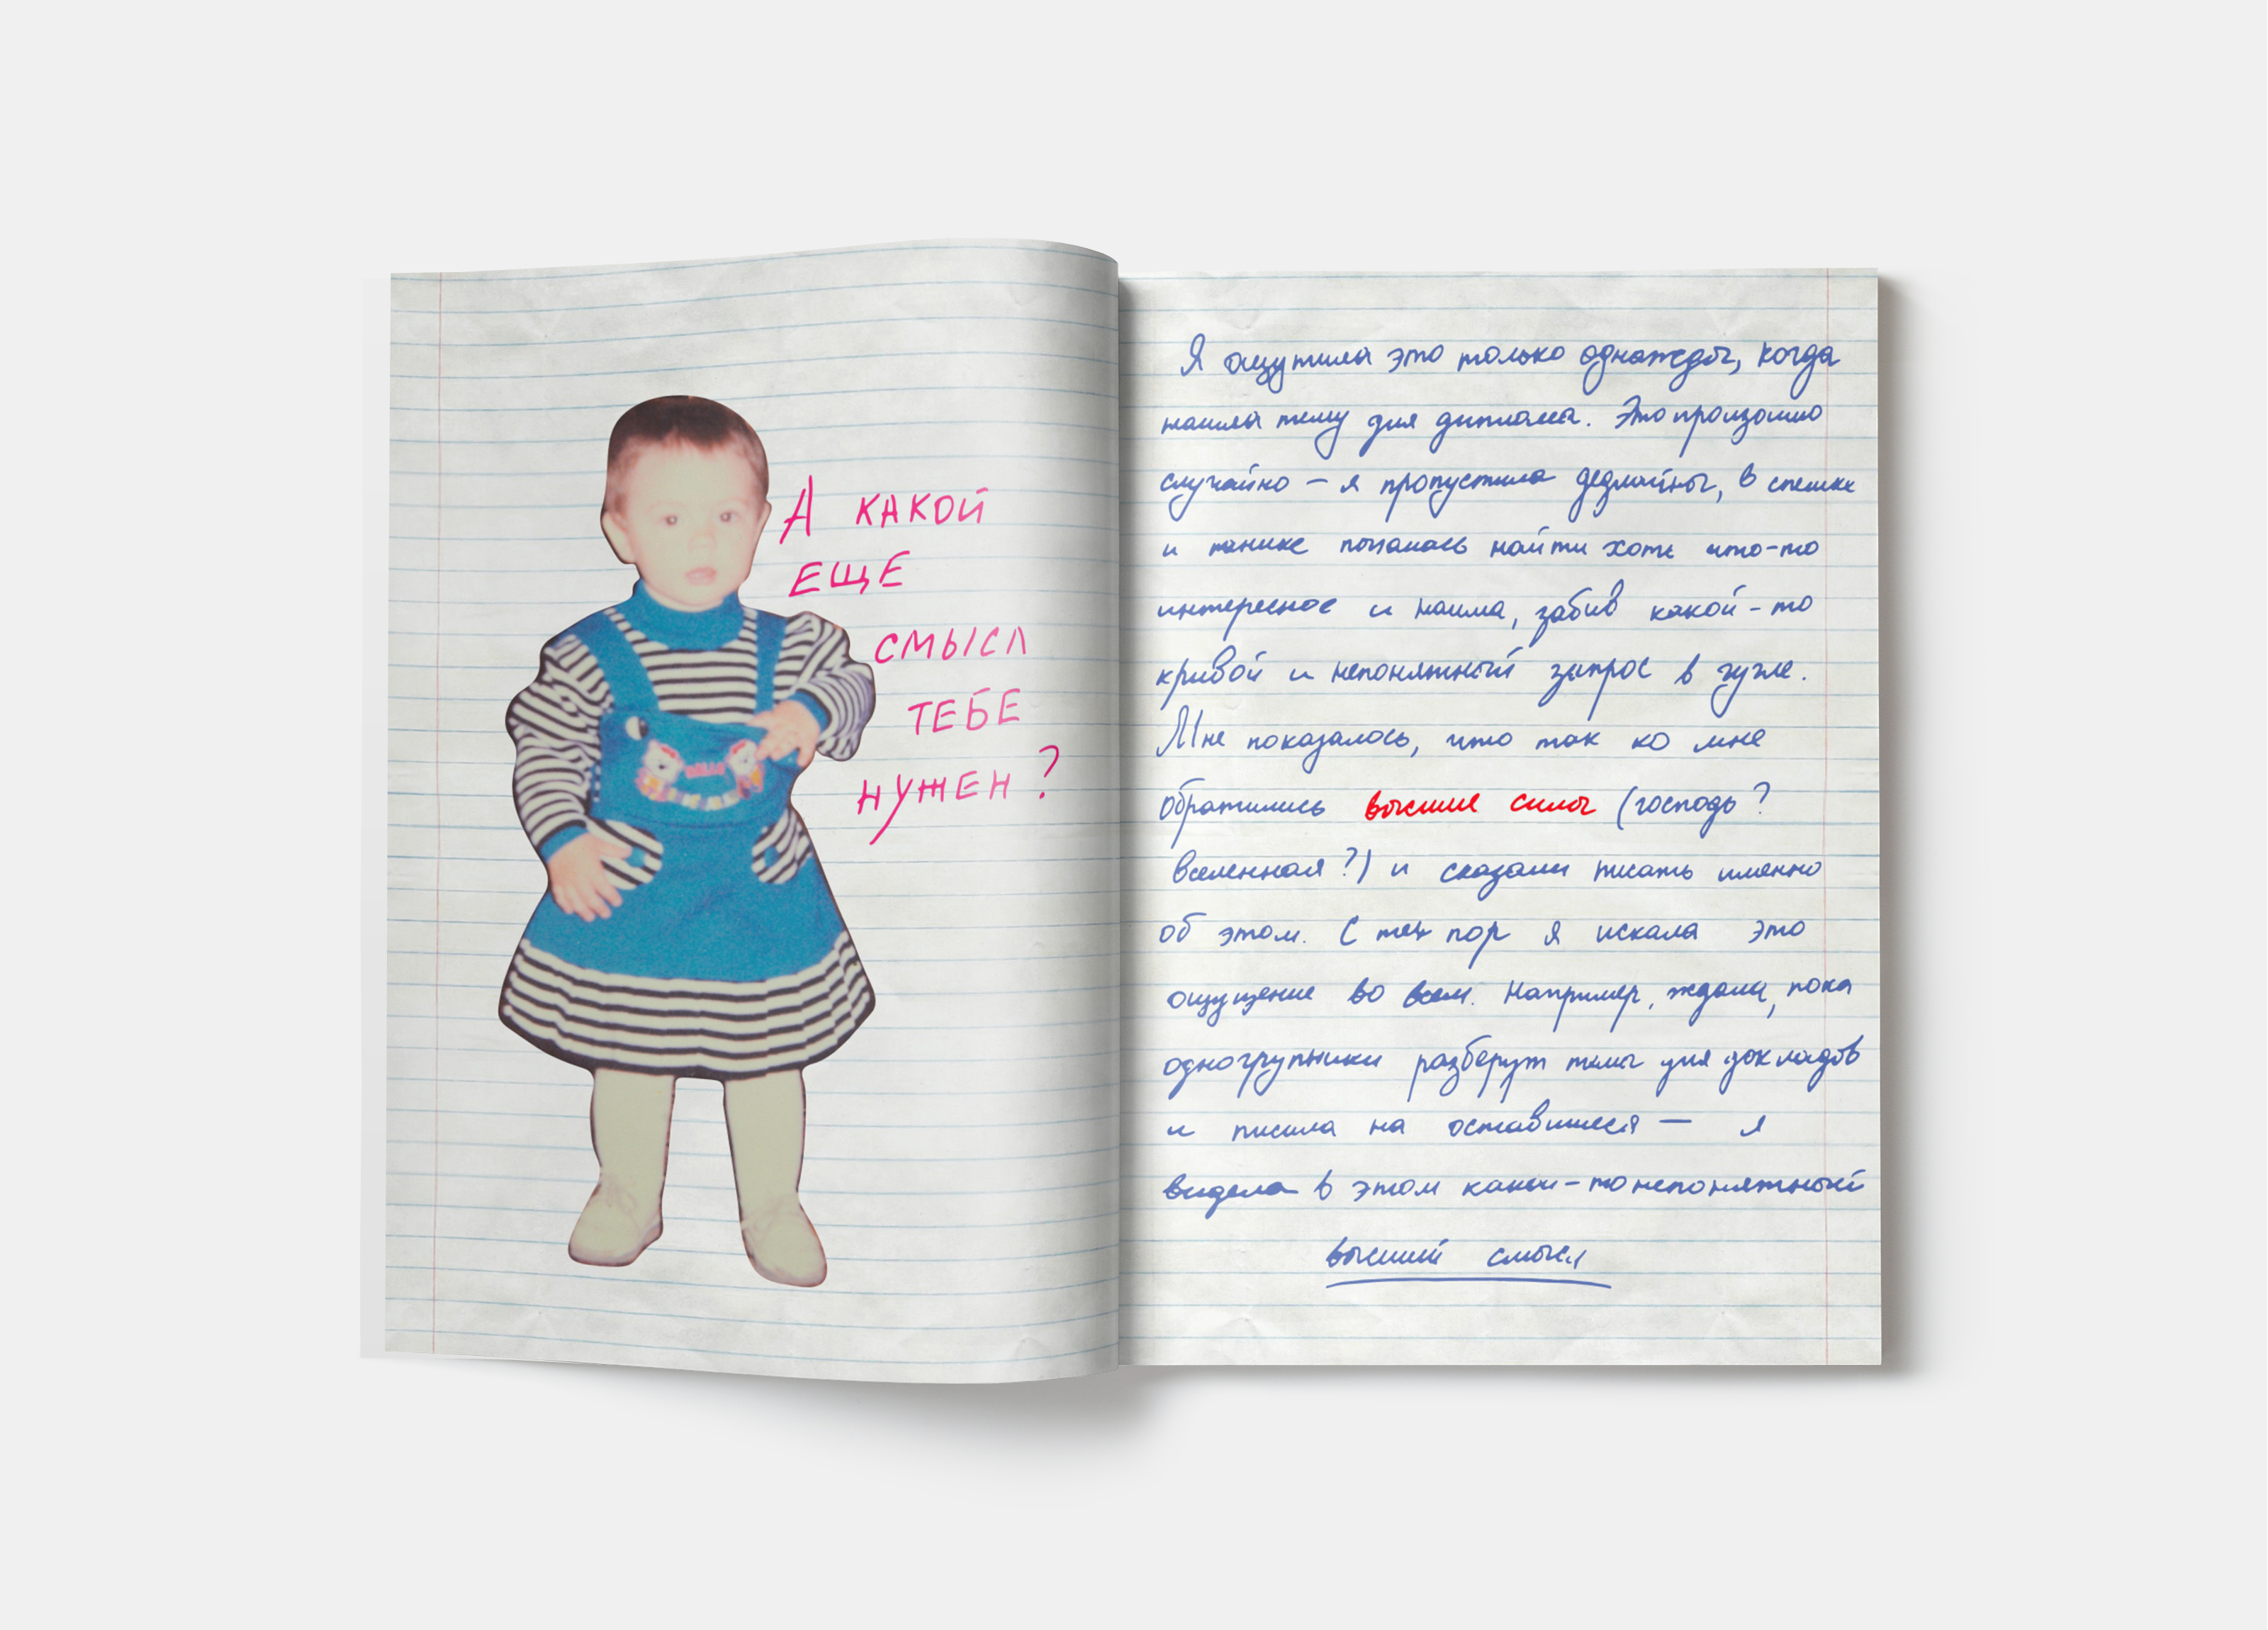 А КАКОЙ
ЕЩЕ
СМЫСЛ
ТЕБЕ
НУЖЕН?
Я ощутила это только однажды, когда
нашла тему для диплома. Это произошло
случайно — я пропустила дедлайны, в спешке
и панике пыталась найти хоть что-то
интересное и нашла, забив какой-то
кривой и непонятный запрос в гугле.
Мне показалось, что так ко мне
обратились высшие силы (господь?
вселенная?) и сказали писать именно
об этом. С тех пор я искала это
ощущение во всем. Например, ждала, пока
одногрупники разберут темы для докладов
и писала на оставшиеся — я
видела в этом какой-то непонятный
высший смысл